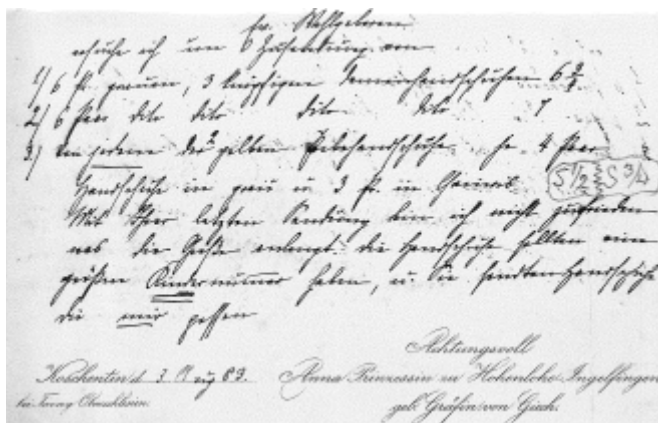 Ew. Wohlgeboren
ersuche ich um Zusendung von
1) 6 P. grauen, 3 knöpfigen Damenhandschuhen 6 3/4
2) 6 Paar dito dito dito dito 7
3.) von jedem der 2 gelben handschuhe je 4 Paar
Handschuhe in grau u. 3 P. in 5 1/2 5 3/4
Mit Ihrer letzten Sendung bin ich nicht zufrieden
was die Größe anlangt. die Handschuhe sollten eine
größere Kindernummer haben, u. Sie sendten Handschuhe
die mir passen
Achtungsvoll
Koschentin d. 3 Aug 89. Anna Prinzessin zu Hohenlohe-Ingelfingen
bei Oberschlesien. geb. Gräfin von Giech.